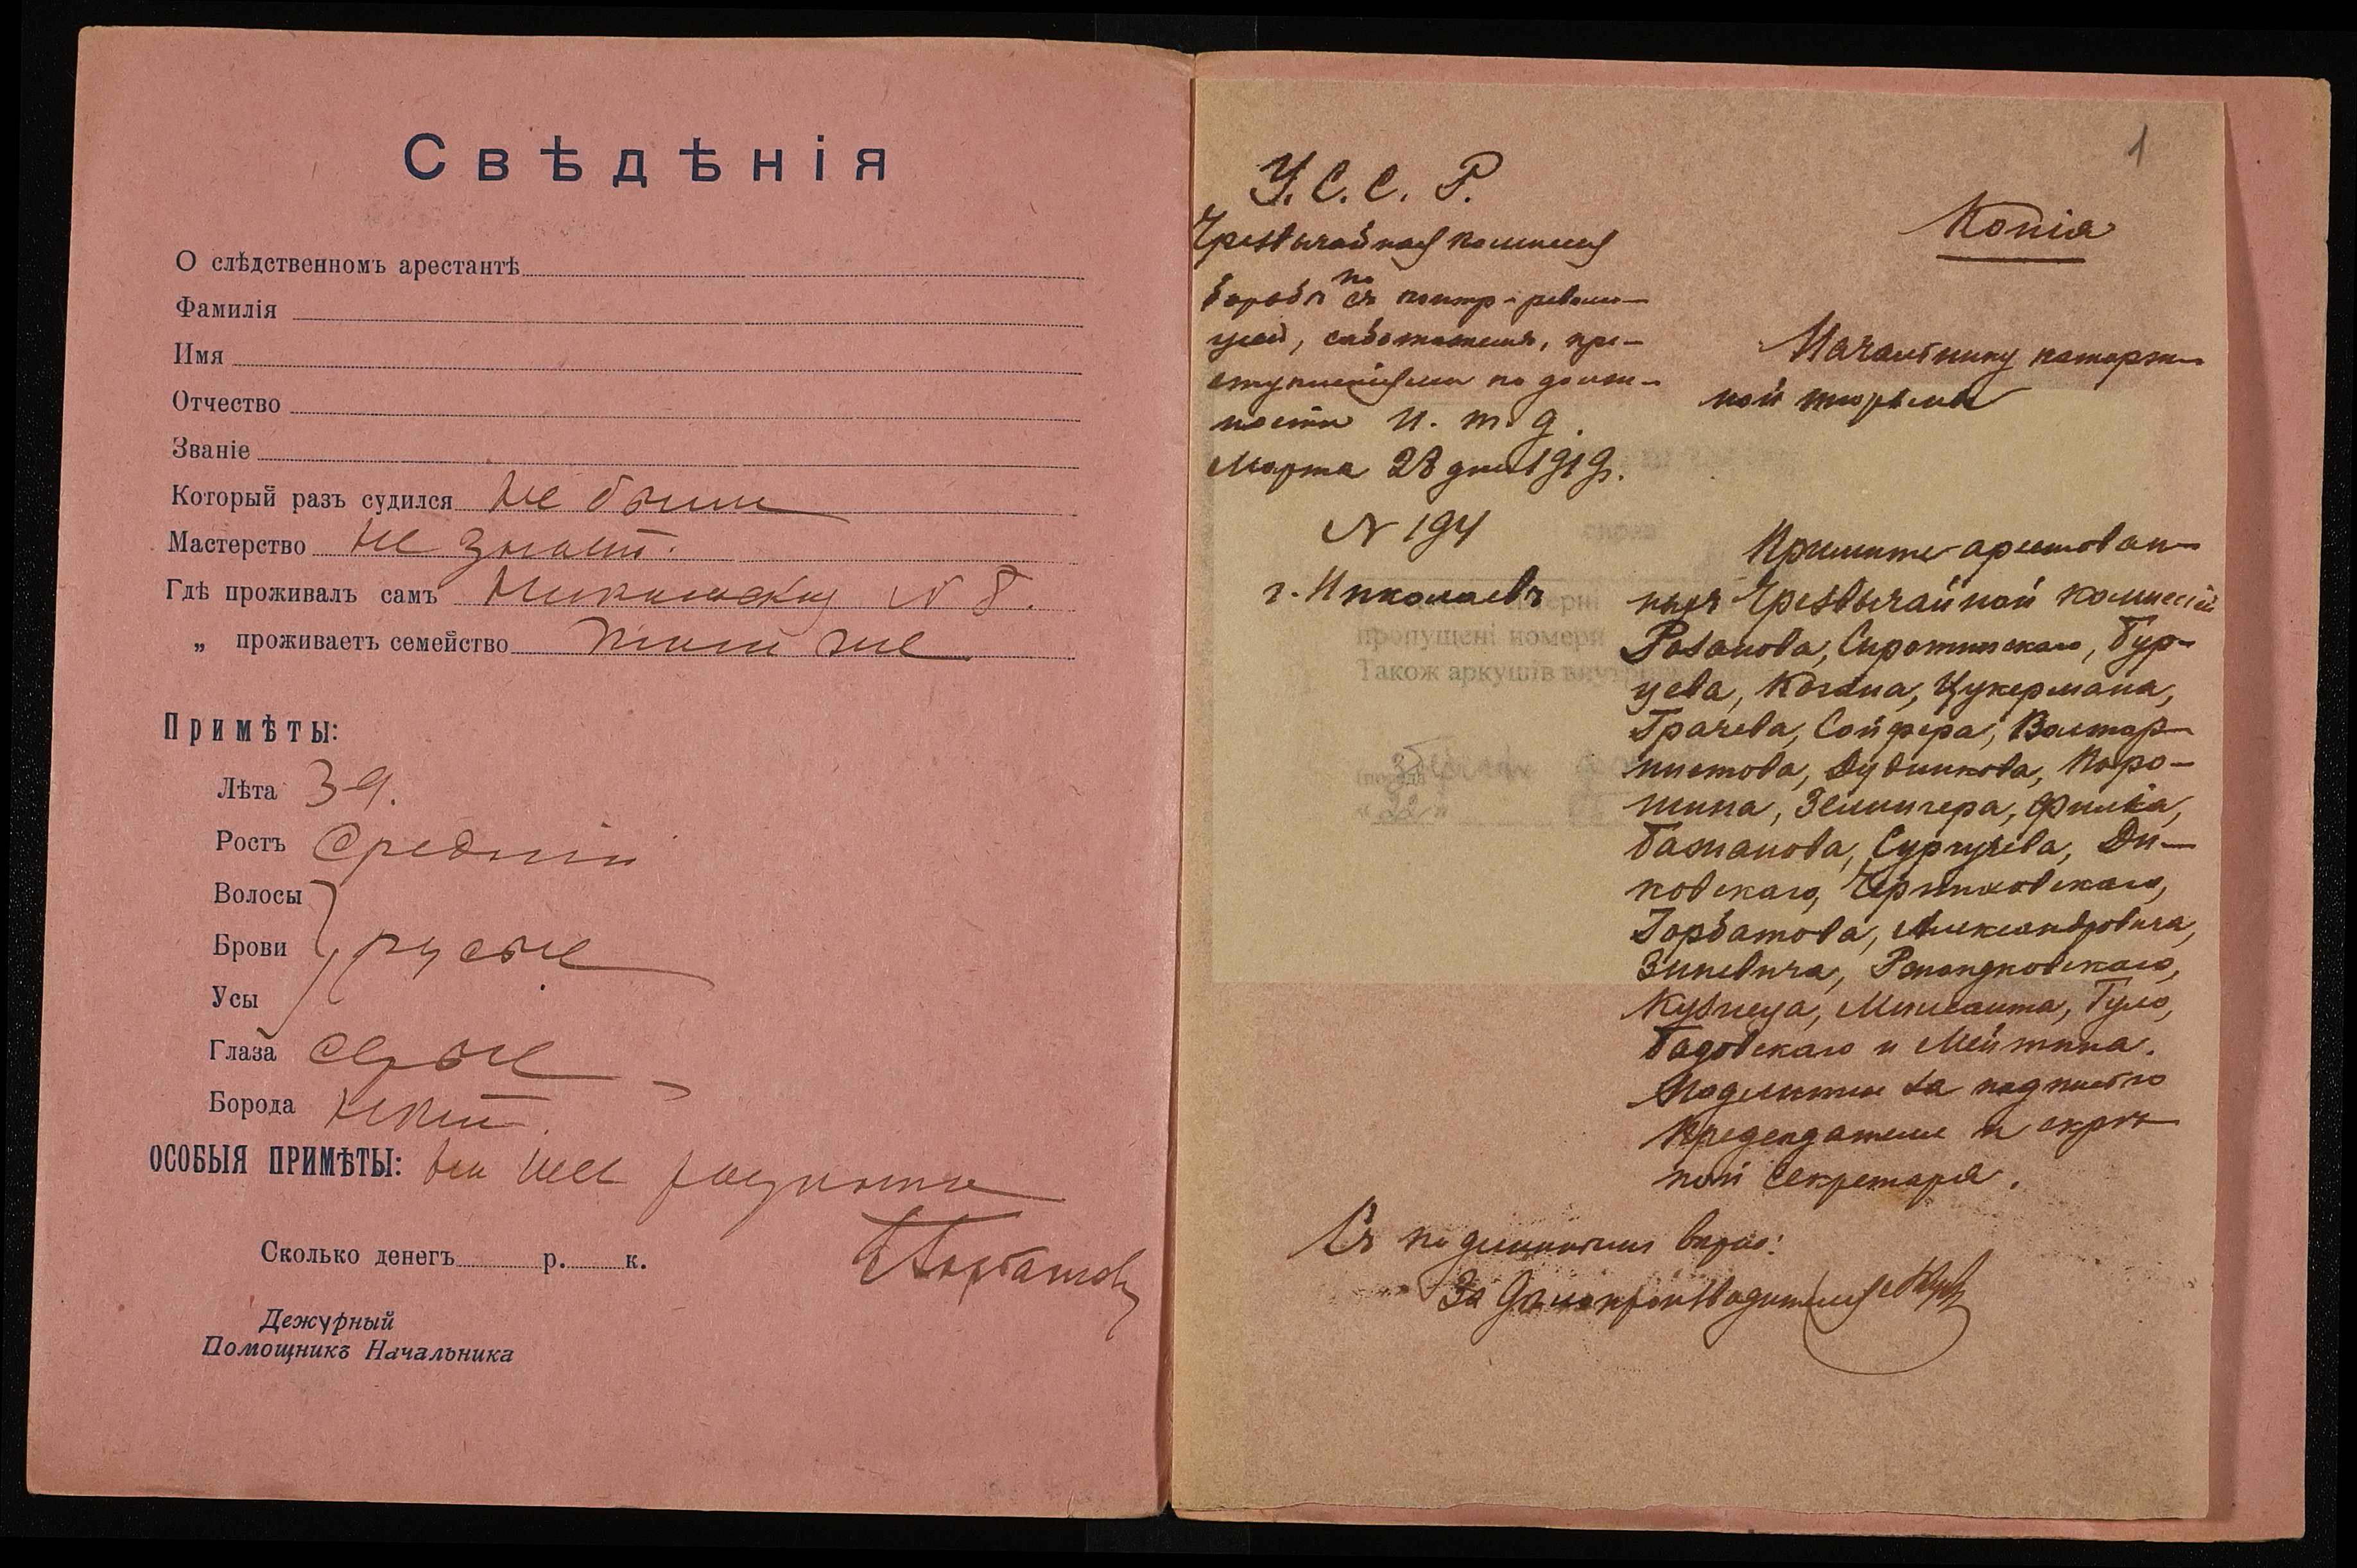 Свѣдѣнія
О слѣдственномъ арестантѣ
Фамилія
Имя
Отчество
Званіе
Который разъ судился не былъ
Мастерство не знаетъ.
Гдѣ проживалъ самъ № 8.
„ проживаетъ семейство тамъ же
Примѣты:
Лѣта 39.
Ростъ средній
Волосы
Брови русые
Усы
Глаза сѣрые
Борода нѣтъ.
ОСОБЫЯ ПРИМѢТЫ: на шеѣ
Сколько денегъ р. к.
Горбатовъ
Дежурный
Помощникъ Начальника
1
У. С. С. Р.
Чрезвычайная комиссія
по
борьбѣ съ контр-револю-
ціей, саботажемъ, пре-
ступленіями по долж-
ности и. т. д.
Марта 28 дня 1919 г.
№ 194
г. Николаевъ
Копія
Начальнику каторж-
ной тюрьмы
Примите арестован-
ныхъ Чрезвычайной комиссіей
Розанова, Сиротинскаго, Бур-
цева, Когана, Цукермана,
Грачева, Сойфера, Валтор-
нистова, Дудникова, Паро-
шина, Зелингера, Финка,
Бажанова, Сургучева, Ди-
ковскаго, Черниховскаго,
Горбатова, Александровича,
Зиневича,
Кузнеца, Гуло,
Бадовскаго и Мейтина.
Подлинное за подписью
предсѣдателя и скрѣ-
пой секретаря.
Съ подлиннымъ вѣрно:
За Дѣлопроизводителя